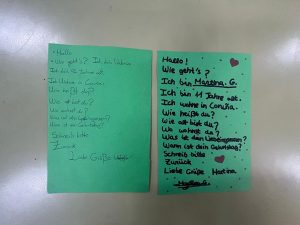 Hallo
Wie geht's? Ich bin
Ich bin 11 Jahre alt.
Ich wohne in Coruña.
Wie heißt du?
Wie alt bist du?
Wo wohnst du?
Was ist dein Lieblings
Wann ist dein Geburtstag?
Schreib bitte
Zurück
Liebe Grüße
Hallo!
Wie geht's?
Ich bin Martina. G.
Ich bin 11 Jahre alt.
Ich wohne in Coruña.
Wie heißt du?
Wie alt bist du?
Wo wohnst du?
Was ist dein Lieblings
Wann ist dein Geburtstag?
Schreib bitte
Zurück
Liebe Grüße Martina